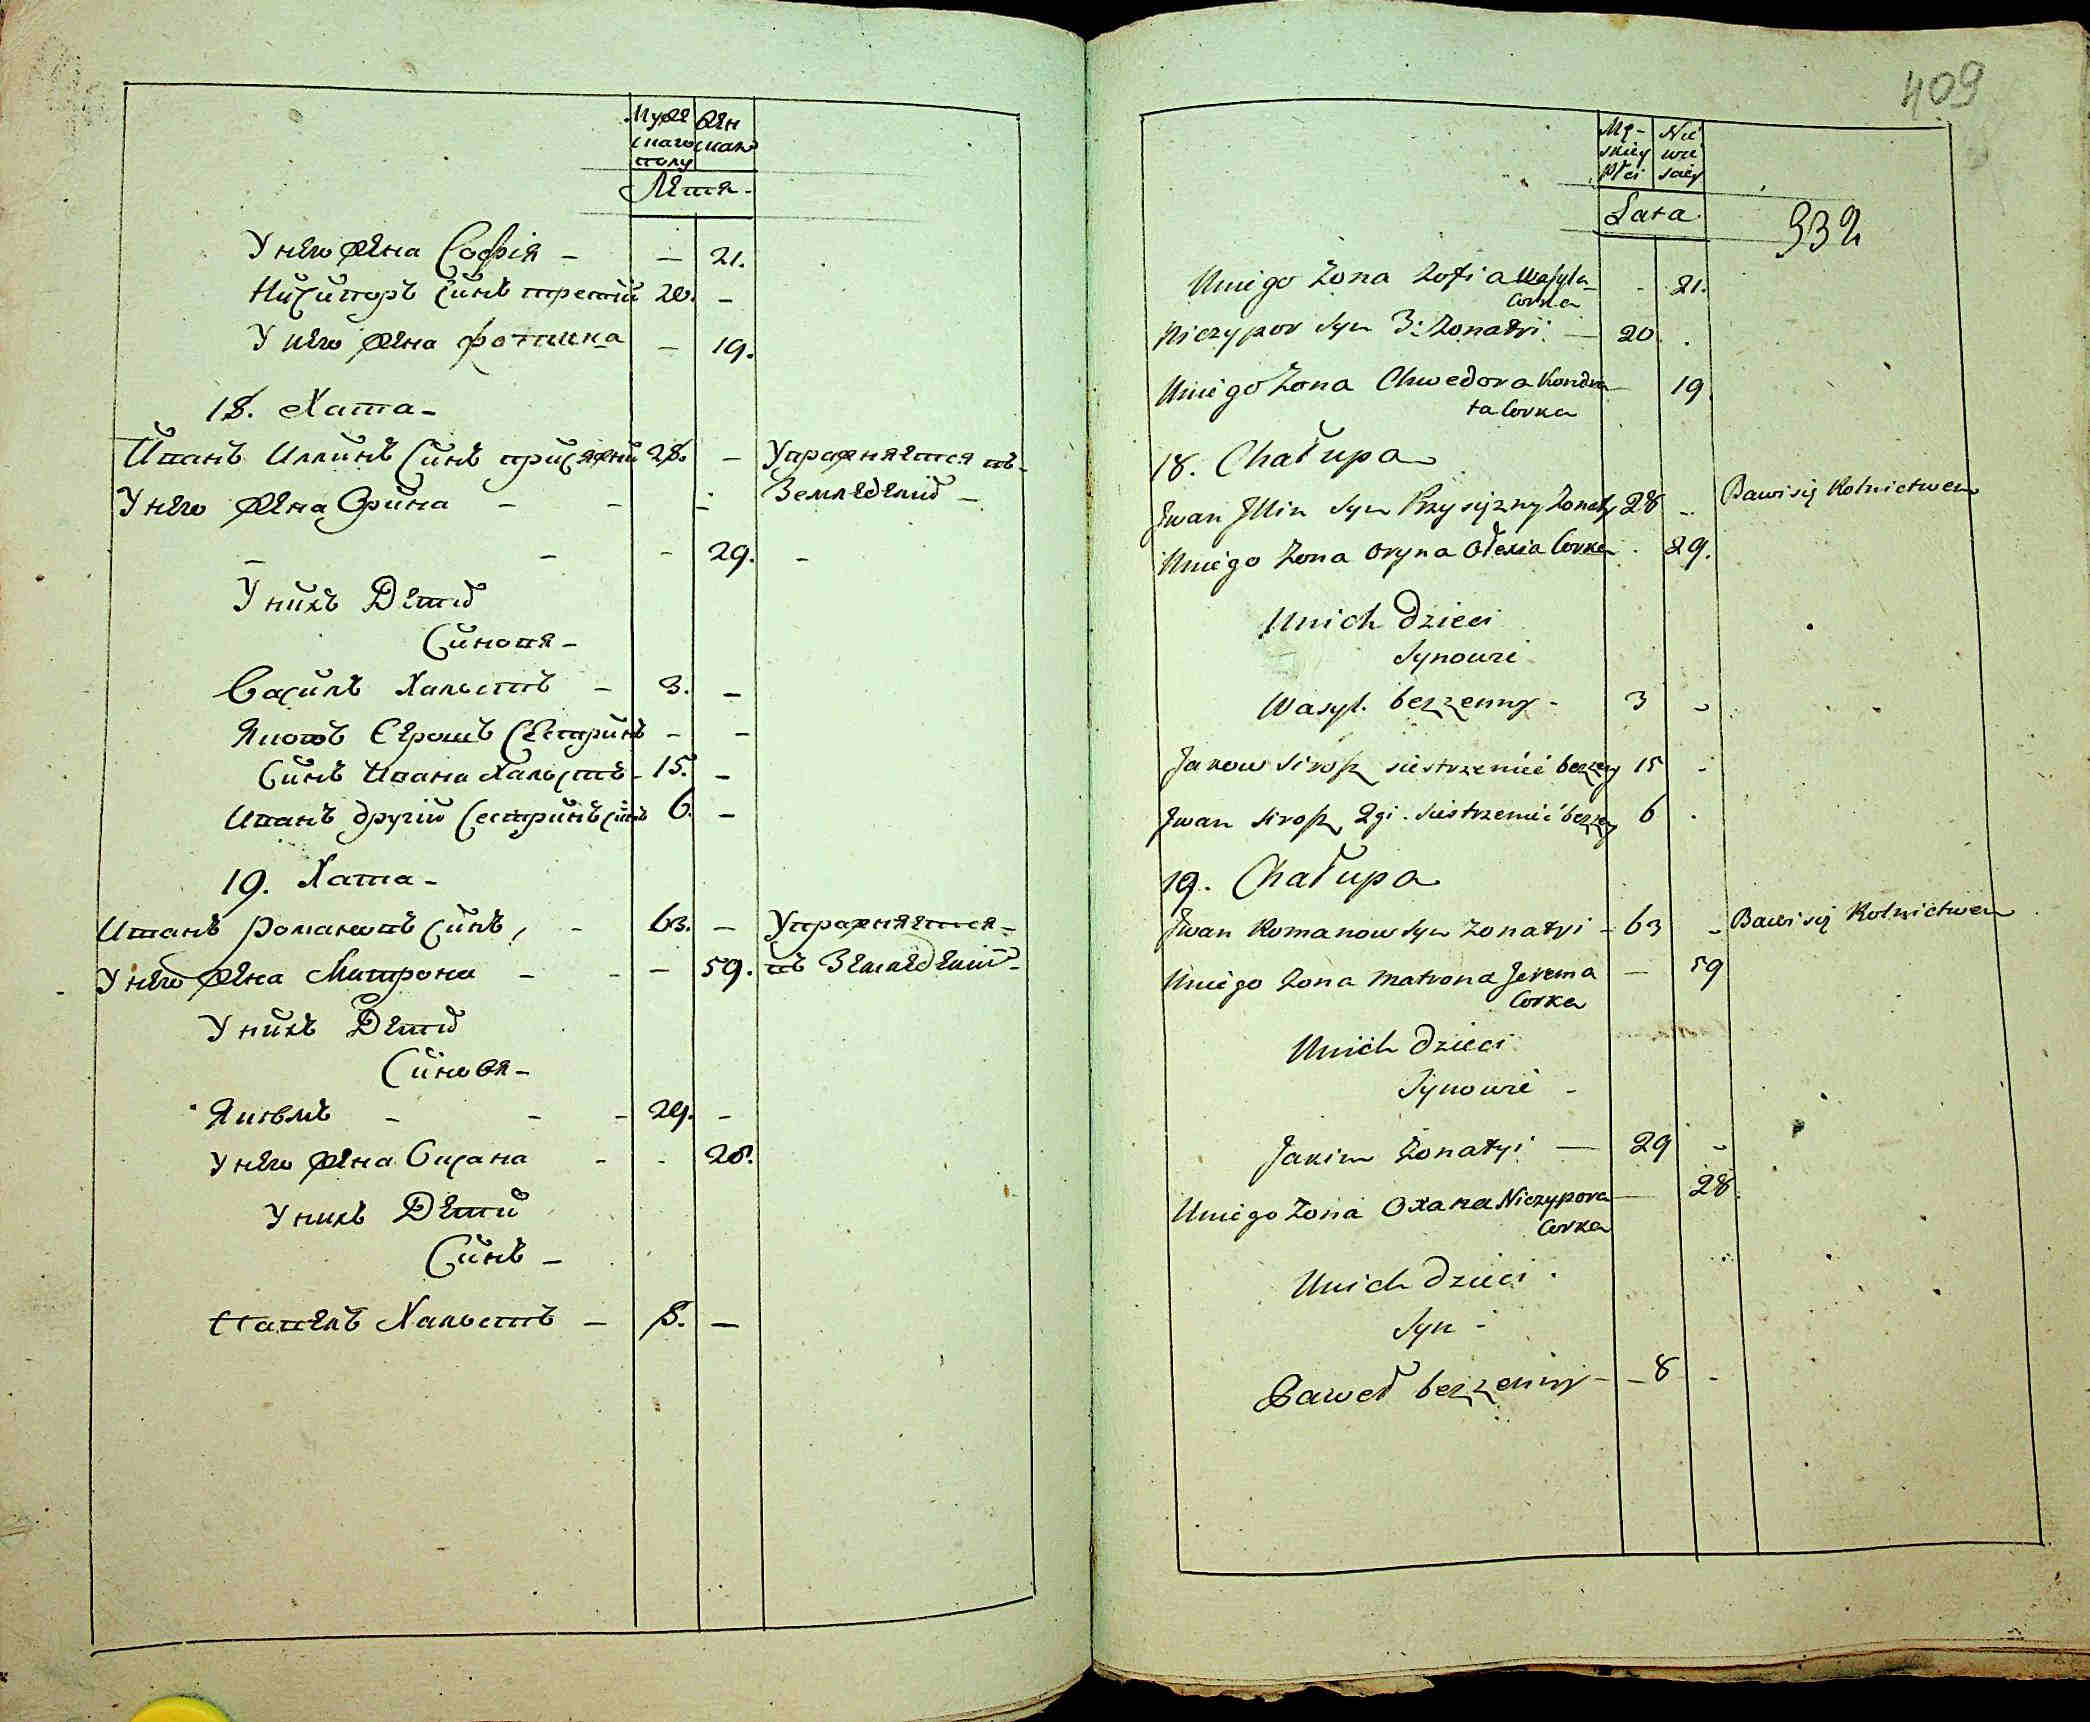 Муже женскаго скаго
полу
Лета.
У него жена Софія - - 21.
Ничипоръ Синъ третій 20. -
У него жена - 19.
18. Хата -
Иванъ Иллинъ Синъ присяжни 28. - Упражняется въ
У него жена Орина - - - Земледелій -
- - - 29. -
У нихъ Дети
Синовя -
Василъ Халостъ - 3. -
Яковъ Сірошъ Сестринъ - -
Синъ Ивана Халостъ - 15. -
Иванъ другій Сестринъ синъ 6. -
19. Хата -
Иванъ Романовъ Синъ, - 63. - Упражняется -
У него жена Матрона - - - 59. въ Земледелій -
У нихъ Дети
Синовя -
Якимъ - - - 29. -
У него жена Оксана - - 28.
У нихъ Дети
Синъ -
Павелъ Халостъ - 8. -
409
Mę- Nie
skiey wie
Płci sciey
Lata.
332
Uniego Zona Zofia Wasyla - - 21.
Corka
Niczypor Syn 3: Zonatyi. - 20 .
Uniego Zona Chwedora Kondra 19.
ta Corka
18. Chałupa
Jwan Jllin Syn Przysięzny Zonaty 28 - Bawi się Rolnictwem
Uniego Zona Oryna Ołexia Corka . 29.
Unich Dzieci
Synowie
Wasyl. bezzenny - 3 -
Jakow Sirosz siestrzenić bezzeny 15 -
Jwan Sirosz 2gi. siestrzenić bezzeny 6 .
19. Chałupa
Jwan Romanow Syn Zonatyi - 63 - Bawi się Rolnictwem
Uniego Zona Matrona Jerema - 59
Corka
Unich Dzieci
Synowie -
Jakim Zonatyi - 29 -
Uniego Zona Oxana Niczypora - 28.
Corka
Unich Dzieci .
Syn -
Paweł bezzenny - - 8 -